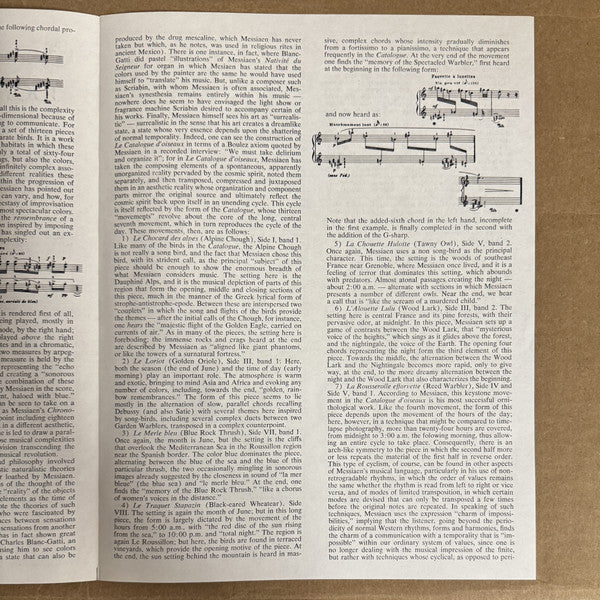 he following chordal pro-
all this is the complexity
-dimensional because of
g to communicate. For
a set of thirteen pieces
arate birds. It is a work
habitats in which these
ly a total of sixty-four
ngs, but also the colors,
nfinitely complex asso-
different realities these
ithin the progression of
Messiaen has pointed out
can vary, and how, for
ecstasy of improvisation
most spectacular colors.
the remembrance of a
mposed by improving
has singled out an ex-
mplexity:
is rendered first of all,
eing played, mostly in
mode, by the right hand;
played above the right
ntes and in a chromatic,
two measures by arpeg-
measure is held by the
representing the "echo
and creating a "sonorous
e combination of these
y Messiaen in the score,
ment, haloed with blue.
can be seen to take on a
as Messiaen's Chrono-
point including eighteen
in a different aesthetic.
e is led to draw a paral-
ose musical complexities
vision transcending the
musical revolution.
nd philosophy involved
otic naturalistic theories
loathed by Messiaen.
of the thought of the
"reality" of the objects
elements as the time of
note the theories of such
who were fascinated by
ences between sensations
sensations from another
has in fact shown great
Charles Blanc-Gatti, an
sing him to see colors
a state that can also be
produced by the drug mescaline, which Messiaen has never
taken but which, as he notes, was used in religious rites in
ancient Mexico). There is one instance, in fact, where Blanc-
Gatti did pastel "illustrations" of Messiaen's Nativité du
Seigneur for organ in which Messiaen has stated that the
colors used by the painter are the same he would have used
himself to "translate" his music. But, unlike a composer such
as Scriabin, with whom Messiaen is often associated, Mes-
siaen's synesthesia remains entirely within his music —
nowhere does he seem to have envisaged the light show or
fragrance machine Scriabin desired to accompany certain of
his works. Finally, Messiaen himself sees his art as "surrealis-
tic" — surrealistic in the sense that his art creates a dreamlike
state, a state whose very essence depends upon the shattering
of normal temporality. Indeed, one can see the construction of
Le Catalogue d'oiseaux in terms of a Boulez axiom quoted by
Messiaen in a recorded interview: "We must take delirium
and organize it"; for in Le Catalogue d'oiseaux, Messiaen has
taken the composing elements of a spontaneous, apparently
unorganized reality pervaded by the cosmic spirit, noted them
separately, and then transposed, composed and juxtaposed
them in an aesthetic reality whose organization and component
parts mirror the original source and ultimately reflect the
cosmic spirit back upon itself in an unending cycle. This cycle
is itself reflected by the form of the Catalogue, whose thirteen
"movements" revolve about the core of the long, central
seventh movement, which in turn reproduces the cycle of the
day. These movements, then, are as follows:
1) Le Chocard des alpes (Alpine Chough), Side I, band 1.
Like many of the birds in the Catalogue, the Alpine Chough
is not really a song bird, and the fact that Messiaen chose this
bird, with its strident call, as the principal "subject" of this
piece should be enough to show the enormous breadth of
what Messiaen considers music. The setting here is the
Dauphiné Alps, and it is the musical depiction of parts of this
region that form the opening, middle and closing sections of
this piece, much in the manner of the Greek lyrical form of
strophe-antistrophe-epode. Between these are interspersed two
"couplets" in which the song and flights of the birds provide
the themes — after the initial calls of the Chough, for instance,
one hears the "majestic flight of the Golden Eagle, carried on
currents of air." As in many of the pieces, the setting here is
foreboding; the immense rocks and crags heard at the end
are described by Messiaen as "aligned like giant phantoms,
or like the towers of a surnatural fortress."
2) Le Loriot (Golden Oriole), Side III, band 1: Here,
both the season (the end of June) and the time of day (early
morning) play an important role. The atmosphere is warm
and exotic, bringing to mind Asia and Africa and evoking any
number of colors, including, toward the end, "golden, rain-
bow remembrances." The form of this piece seems to lie
mostly in the alternation of slow, parallel chords recalling
Debussy (and also Satie) with several themes here inspired
by song-birds, including several complex duets between two
Garden Warblers, transposed in a complex counterpoint.
3) Le Merle bleu (Blue Rock Thrush), Side VII, band 1.
Once again, the month is June, but the setting is the cliffs
that overlook the Mediterranean Sea in the Roussillon region
near the Spanish border. The color blue dominates the piece,
alternating between the blue of the sea and the blue of this
particular thrush, the two occasionally mingling in sonorous
images already suggested by the closeness in sound of "la mer
bleue" (the blue sea) and "le merle bleu." At the end, one
finds the "memory of the Blue Rock Thrush," "like a chorus
of women's voices in the distance."
4) Le Traquet Stapazin (Black-eared Wheatear), Side
VIII. The setting is again the month of June; but in this long
piece, the form is largely dictated by the movement of the
hours from 5:00 a.m. — with "the red disc of the sun rising
from the sea," to 10:00 p.m. and "total night." The region is
again Le Roussillon; but here, the birds are found in terraced
vineyards, which provide the opening motive of the piece. At
the end, the sun setting behind the mountain is heard in mas-
sive, complex chords whose intensity gradually diminishes
from a fortissimo to a pianissimo, a technique that appears
frequently in the Catalogue. At the very end of the movement
one finds the "memory of the Spectacled Warbler," first heard
at the beginning in the following form:
Fauvette à lunettes
and now heard as:
Note that the added-sixth chord in the left hand, incomplete
in the first example, is finally completed in the second with
the addition of the G-sharp.
5) La Chouette Hulotte (Tawny Owl), Side V, band 2.
Once again, Messiaen uses a non song-bird as the principal
character. This time, the setting is the woods of southeast
France near Grenoble, where Messiaen once lived, and it is a
feeling of terror that dominates this setting, which abounds
with predators. Almost atonal passages creating the night —
about 2:00 a.m. — alternate with sections in which Messiaen
presents a number of different owls. Near the end, we hear
a call that is "like the scream of a murdered child."
6) L'Alouette Lulu (Wood Lark), Side III, band 2. The
setting here is central France and its pine forests, with their
pervasive odor, at midnight. In this piece, Messiaen sets up a
game of contrasts between the Wood Lark, that "mysterious
voice of the heights," which sings as it glides above the forest,
and the nightingale, the voice of the Earth. The opening four
chords representing the night form the third element of this
piece. Towards the middle, the alternation between the Wood
Lark and the Nightingale becomes more rapid, only to give
way, at the end, to the more dreamy alternation between the
night and the Wood Lark that also characterizes the beginning.
7) La Rousserolle effarvette (Reed Warbler), Side IV and
Side V, band 1. According to Messiaen, this keystone move-
ment in the Catalogue d'oiseaux is his most successful orni-
thological work. Like the fourth movement, the form of this
piece depends upon the movement of the hours of the day;
here, however, in a technique that might be compared to time-
lapse photography, more than twenty-four hours are covered,
from midnight to 3:00 a.m. the following morning, thus allow-
ing an entire cycle to take place. Consequently, there is an
arch-like symmetry to the piece in which the second half more
or less repeats the material of the first half in reverse order.
This type of cyclism, of course, can be found in other aspects
of Messiaen's musical language, particularly in his use of non-
retrogradable rhythms, in which the order of values remains
the same whether the rhythm is read from left to right or vice
versa, and of modes of limited transposition, in which certain
modes are devised that can only be transposed a few times
before the original notes are repeated. In speaking of such
techniques, Messiaen uses the expression "charm of impossi-
bilities," implying that the listener, going beyond the period-
icity of normal Western rhythms, forms and harmonies, finds
the charm of a communication with a temporality that is "im-
possible" within our ordinary system of values, since one is
no longer dealing with the musical impression of the finite,
but rather with techniques whose cyclical, as opposed to peri-